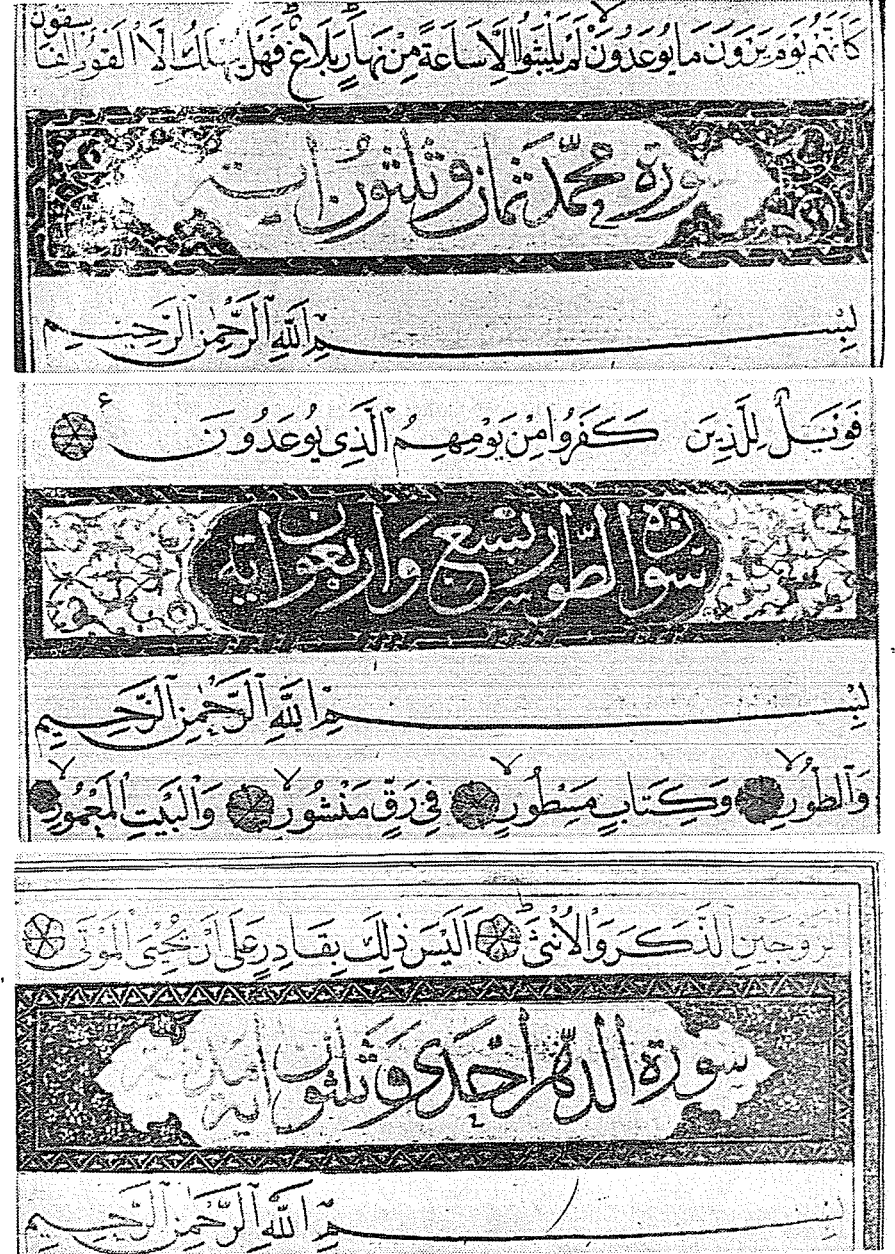 كَأَنَّهُمْ يَوْمَ يَرَوْنَ مَا يُوعَدُونَ لَمْ يَلْبَثُوا إِلَّا سَاعَةً مِنْ نَهَارٍ بَلَاغٌ فَهَلْ يُهْلَكُ إِلَّا الْقَوْمُ الْفَاسِقُونَ
سورة محمد ثمان وثلثون اية
بِسْمِ اللَّهِ الرَّحْمٰنِ الرَّحِيمِ
فَوَيْلٌ لِلَّذِينَ كَفَرُوا مِنْ يَوْمِهِمُ الَّذِي يُوعَدُونَ
سورة الطور تسع واربعون اية
بِسْمِ اللَّهِ الرَّحْمٰنِ الرَّحِيمِ
وَالطُّورِ وَكِتَابٍ مَسْطُورٍ فِي رَقٍّ مَنْشُورٍ وَالْبَيْتِ الْمَعْمُورِ
الزَّوْجَيْنِ الذَّكَرَ وَالْأُنْثَى أَلَيْسَ ذٰلِكَ بِقَادِرٍ عَلَى أَنْ يُحْيِيَ الْمَوْتَى
سورة الدهر احدى وثلثون اية
بِسْمِ اللَّهِ الرَّحْمٰنِ الرَّحِيمِ